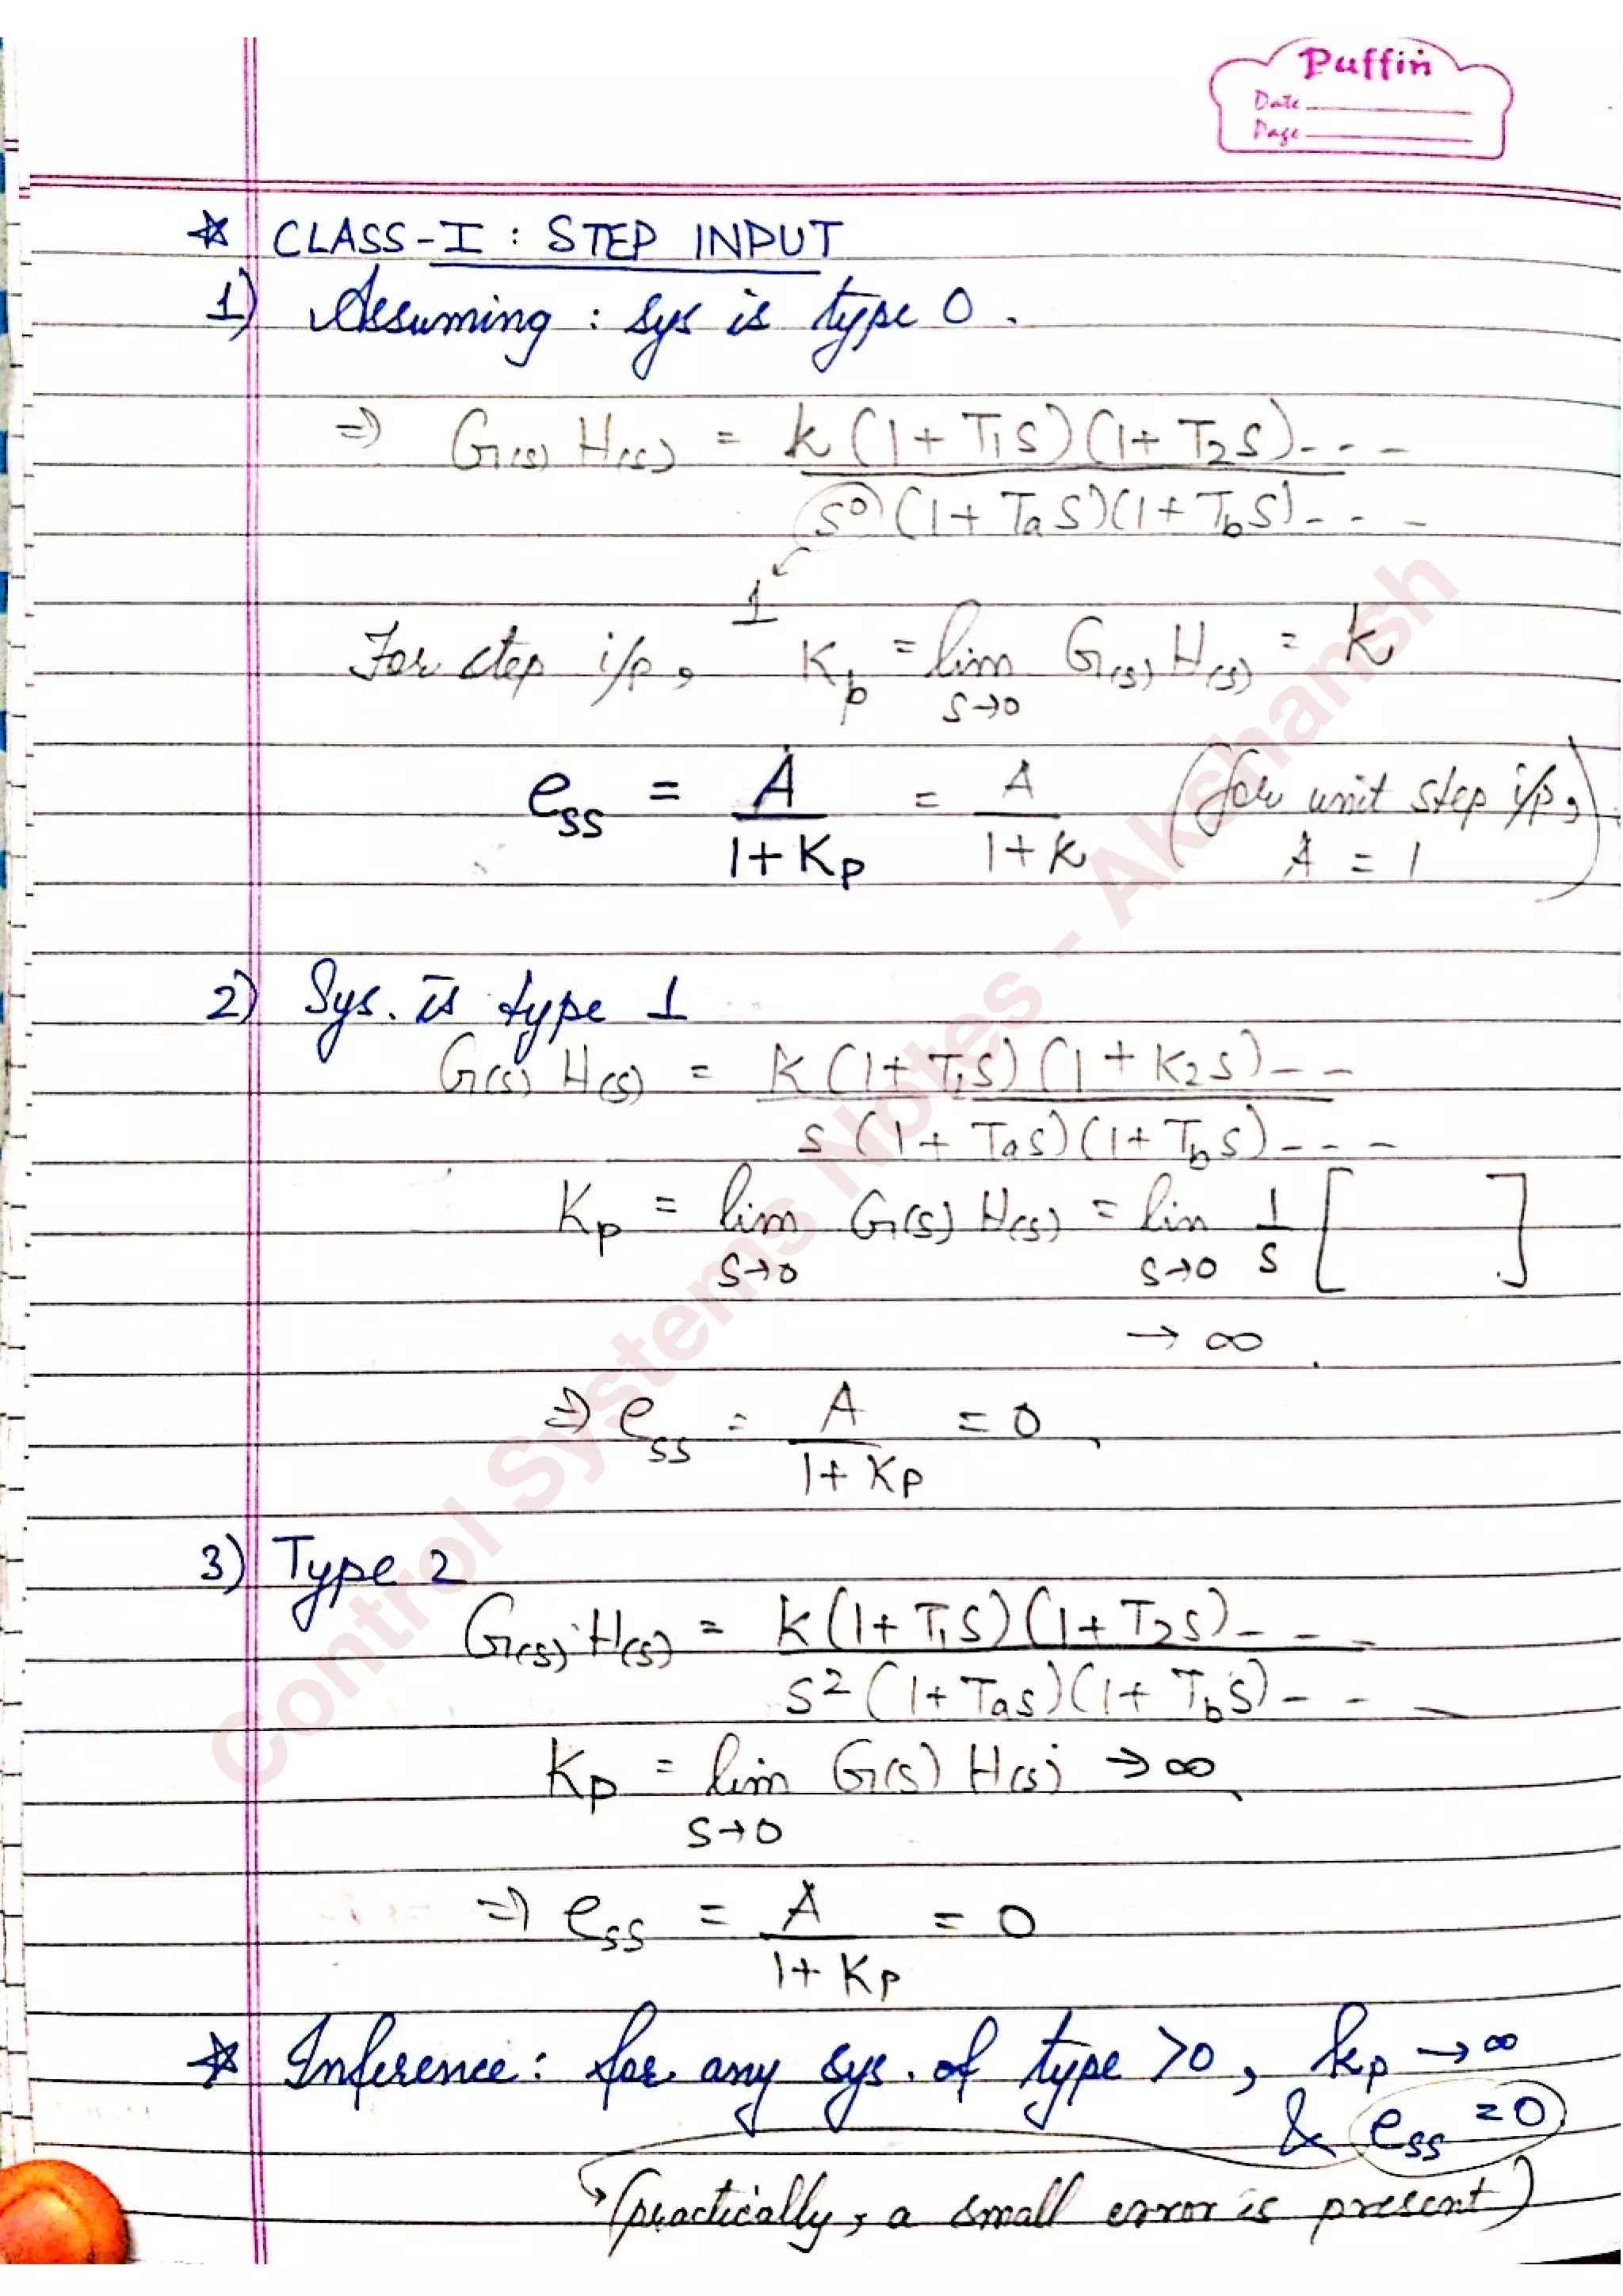 Puffin
Date
Page
☆ CLASS-I : STEP INPUT
1) Assuming : sys is type 0 .
⇒ G(s) H(s) = k (1 + T1s)(1 + T2s)- - -
s⁰ (1 + Tas)(1 + Tbs)- - -
1
For step i/p, Kp = lim G(s) H(s) = k
s→0
ess = A = A (for unit step i/p,
1 + Kp 1 + k A = 1)
2) Sys. is type 1
G(s) H(s) = k (1 + T1s)(1 + K2s)- -
s (1 + Tas)(1 + Tbs)- - -
Kp = lim G(s) H(s) = lim 1 [ ]
s→0 s→0 s
→ ∞
⇒ ess = A = 0
1 + Kp
3) Type 2
G(s) H(s) = k (1 + T1s)(1 + T2s)- - -
s² (1 + Tas)(1 + Tbs)- - -
Kp = lim G(s) H(s) → ∞
s→0
⇒ ess = A = 0
1 + Kp
☆ Inference : for any sys. of type >0, kp → ∞
& ess = 0
↳ (practically, a small error is present)
Control Systems Notes - Akshansh